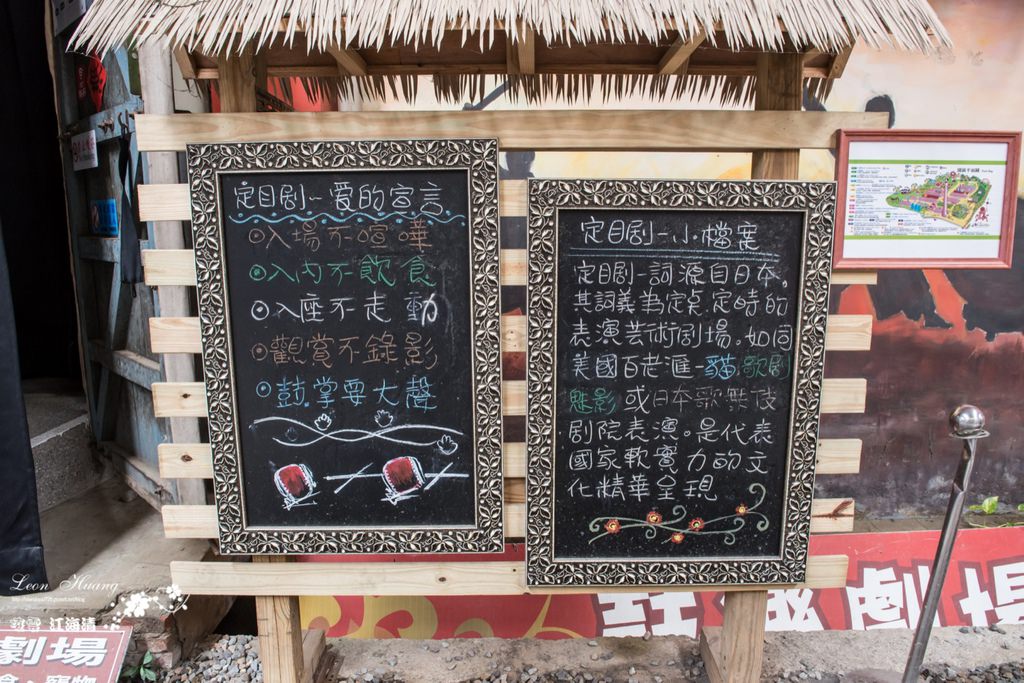 定目剧~爱的宣言
入場不喧嘩
入內不飲食
入座不走動
觀賞不錄影
鼓掌要大聲
定目剧-小檔案
定目剧一詞源自日本,
其詞義為定桌.定時的
表演芸術剧場。如同
美國百老滙-貓.歌剧
魅影 或日本歌舞伎
剧院表演。是代表
國家軟實力的文
化精華呈現
Leon Huang
江海清
劇場
劇場